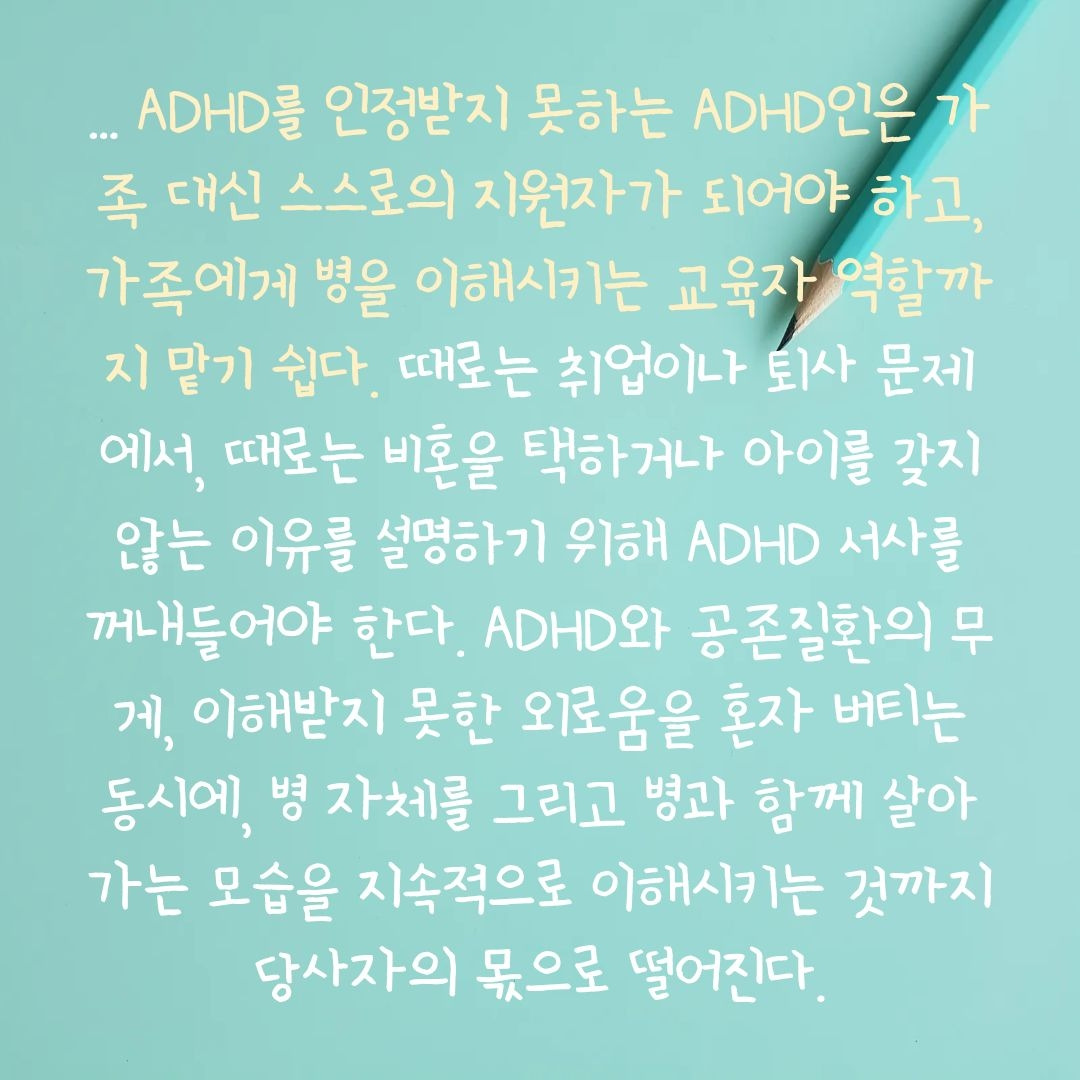 ... ADHD를 인정받지 못하는 ADHD인은 가
족 대신 스스로의 지원자가 되어야 하고,
가족에게 병을 이해시키는 교육자 역할까
지 맡기 쉽다. 때로는 취업이나 퇴사 문제
에서, 때로는 비혼을 택하거나 아이를 갖지
않는 이유를 설명하기 위해 ADHD 서사를
꺼내들어야 한다. ADHD와 공존질환의 무
게, 이해받지 못한 외로움을 혼자 버티는
동시에, 병 자체를 그리고 병과 함께 살아
가는 모습을 지속적으로 이해시키는 것까지
당사자의 몫으로 떨어진다.